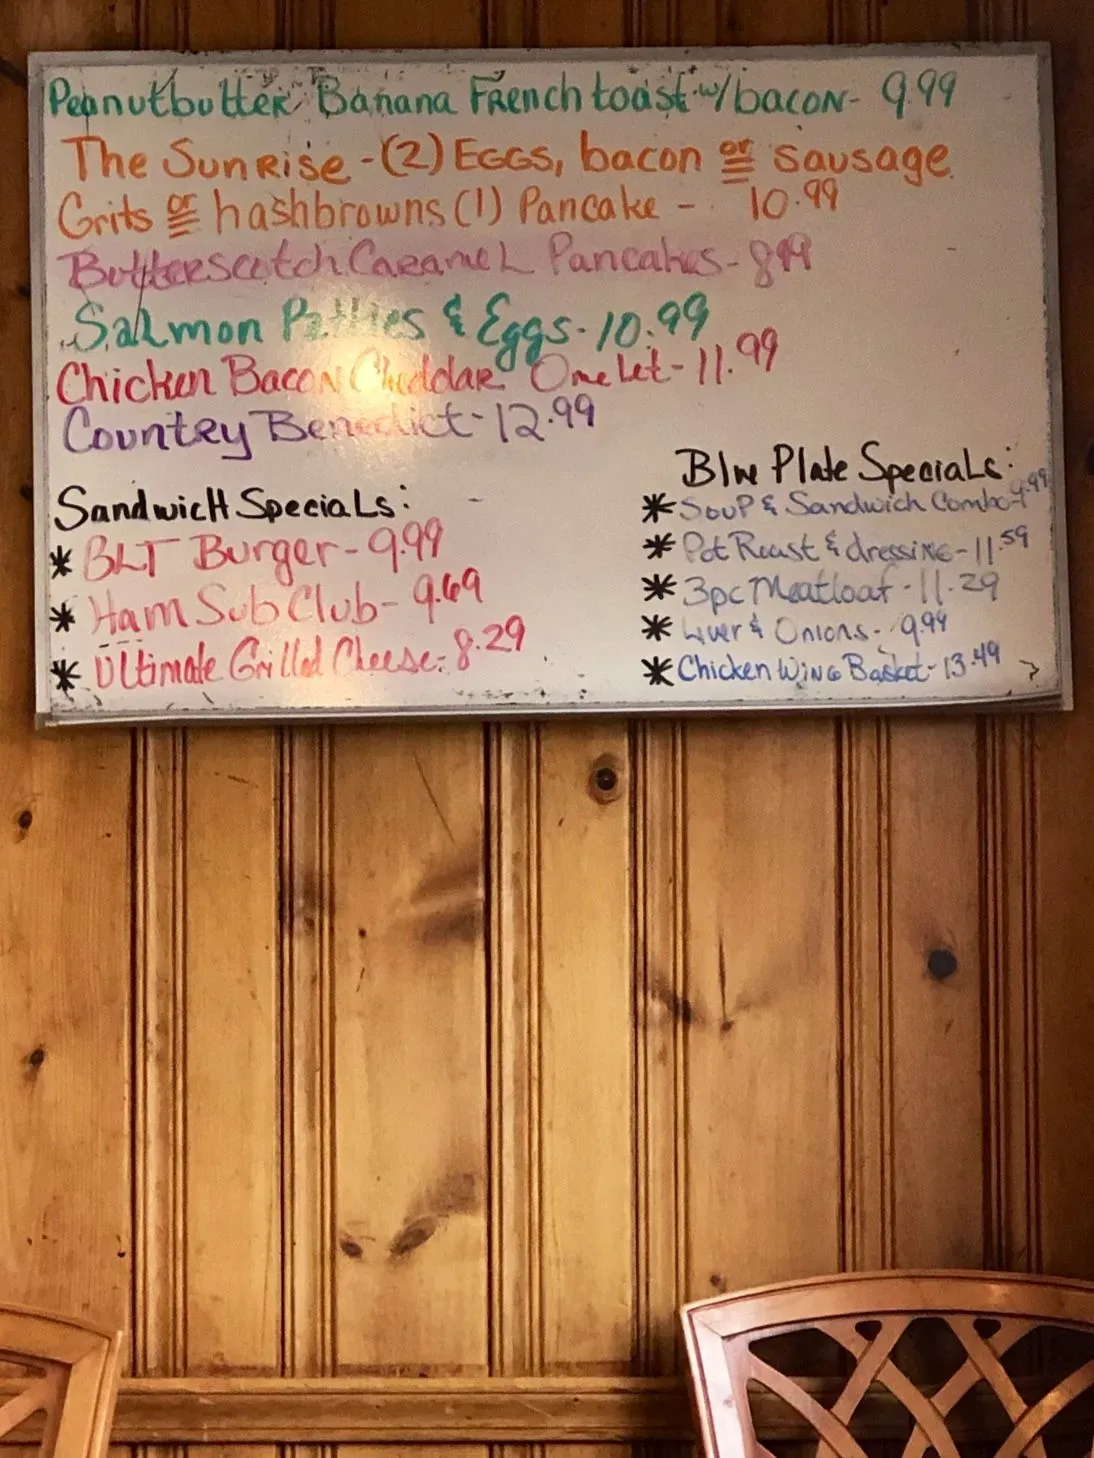 Peanutbutter Banana French toast w/bacon- 9.99
The Sunrise -(2) Eggs, bacon or sausage
Grits or hashbrowns (1) Pancake - 10.99
Butterscotch Caramel Pancakes- 8.99
Salmon Patties & Eggs- 10.99
Chicken Bacon Cheddar Omelet- 11.99
Country Benedict- 12.99
Sandwich Specials:
* BLT Burger- 9.99
* Ham Sub Club- 9.69
* Ultimate Grilled Cheese- 8.29
Blue Plate Specials:
* Soup & Sandwich Combo-
* Pot Roast & dressing- 11.59
* 3pc Meatloaf - 11.29
* Liver & Onions- 9.99
* Chicken Wing Basket- 13.49